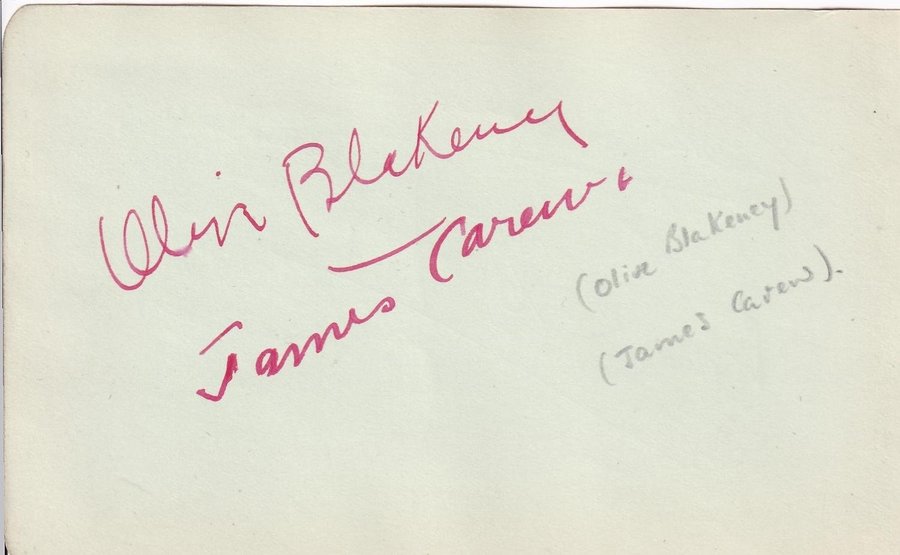 Olive Blakeney
James Carew.
(Olive Blakeney)
(James Carew).